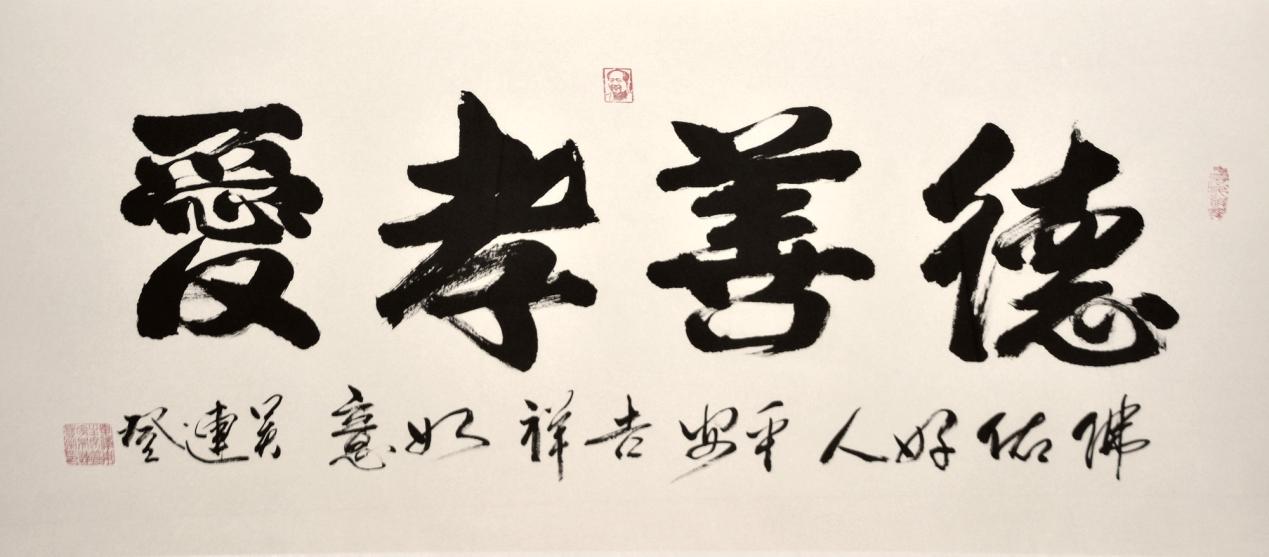 德善孝愛
佛佑好人 平安 吉祥 如意 吴連登